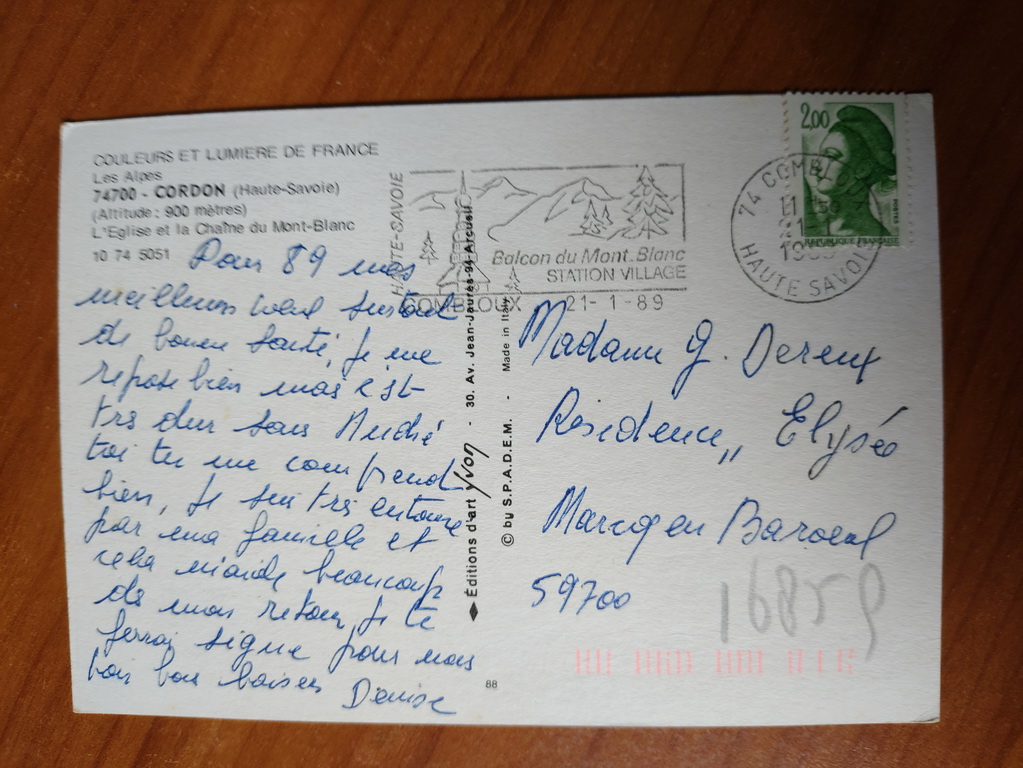 COULEURS ET LUMIERE DE FRANCE
Les Alpes
74700 - CORDON (Haute-Savoie)
(Altitude : 900 mètres)
L'Eglise et la Chaîne du Mont-Blanc
10 74 5051
Pour 89 mes
meilleurs vœux surtout
de bonne santé, je me
repose bien mais c'est
très dur sans André
toi tu me comprend
bien, je suis très entourée
par ma famille et
cela m'aide beaucoup
de mon retour je te
ferrai signe pour nous
voir bon baisers
Denise
88
Éditions d'art Yvon - 30. Av. Jean-Jaurès-94-Arcueil
© by S.P.A.D.E.M. - Made in Italy
HAUTE-SAVOIE
Balcon du Mont.Blanc
STATION VILLAGE
COMBLOUX 21-1-89
74 COMBLOUX
21-1
1989
HAUTE SAVOIE
2,00
POSTES
REPUBLIQUE FRANCAISE
Madame G. Dereux
Résidence „ Elysée
Marcq en Baroeul
59700